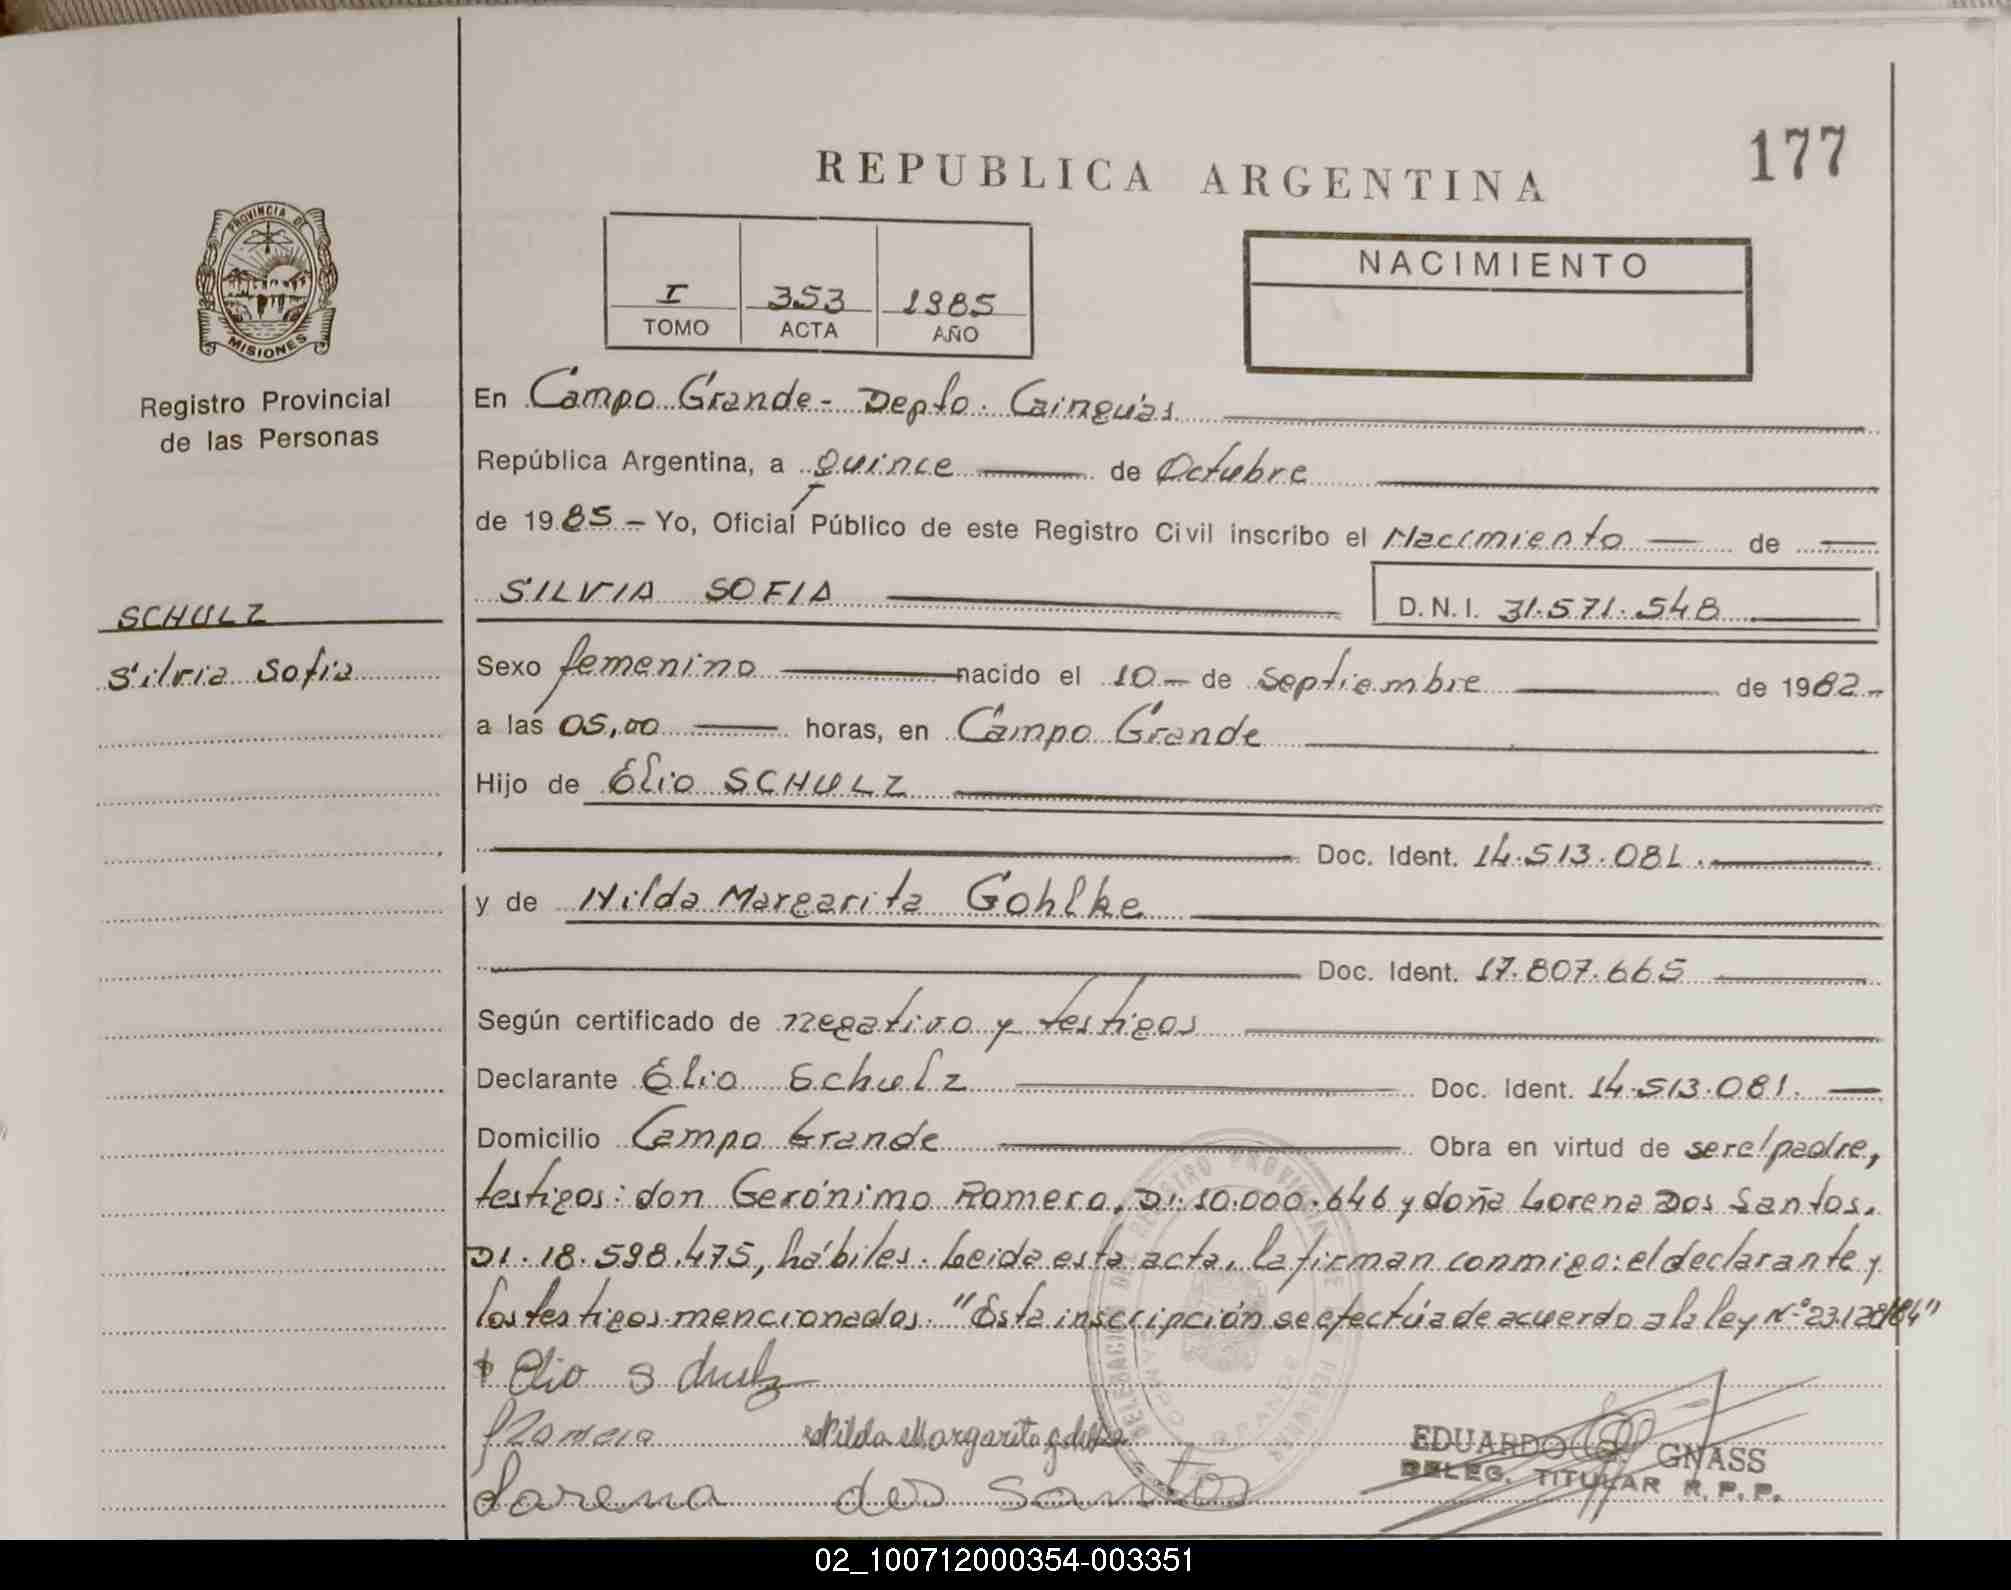 177
REPUBLICA ARGENTINA
PROVINCIA DE
MISIONES
Registro Provincial
de las Personas
I 353 1985
TOMO ACTA AÑO
NACIMIENTO
En Campo Grande - Depto. Cainguás
República Argentina, a Quince de Octubre
de 1985 - Yo, Oficial Público de este Registro Civil inscribo el Nacimiento de
SILVIA SOFIA D.N.I. 31.571.548
SCHULZ
Silvia Sofia
Sexo femenino nacido el 10 - de septiembre de 1982 -
a las 05,00 horas, en Campo Grande
Hijo de Elio SCHULZ
Doc. Ident. 14.513.081.
y de Hilda Margarita Gohlke
Doc. Ident. 17.807.665
Según certificado de negativo y testigos
Declarante Elio Schulz Doc. Ident. 14.513.081.
Domicilio Campo Grande Obra en virtud de ser el padre,
testigos: don Gerónimo Romero, DI. 10.000.646 y doña Lorena Dos Santos.
DI. 18.598.475, hábiles. Leida esta acta, la firman conmigo: el declarante y
los testigos mencionados. "Esta inscripción se efectúa de acuerdo a la ley N.º 23.128/84"
Elio Schulz
Romero Hilda Margarita
EDUARDO GNASS
DELEG. TITULAR R.P.P.
Lorena dos Santos
02_100712000354-003351